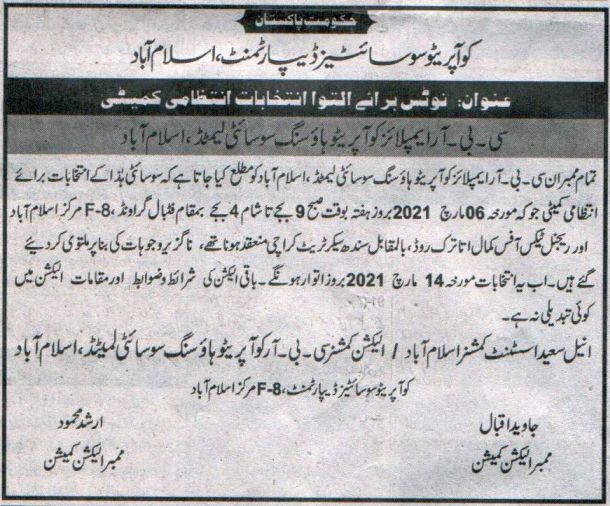 حکومت پاکستان
کوآپریٹو سوسائٹیز ڈیپارٹمنٹ، اسلام آباد
عنوان: نوٹس برائے التوا انتخابات انتظامی کمیٹی
سی۔بی۔آر ایمپلائز کوآپریٹو ہاؤسنگ سوسائٹی لمیٹڈ، اسلام آباد
تمام ممبران سی۔بی۔آر ایمپلائز کوآپریٹو ہاؤسنگ سوسائٹی لمیٹڈ، اسلام آباد کو مطلع کیا جاتا ہے کہ سوسائٹی ہذا کے انتخابات برائے
انتظامی کمیٹی جو کہ مورخہ 06 مارچ 2021 بروز ہفتہ بوقت صبح 9 بجے تا شام 4 بجے بمقام فٹبال گراونڈ، F-8 مرکز اسلام آباد
اور ریجنل ٹیکس آفس کمال اتا ترک روڈ، بالمقابل سندھ سیکرٹریٹ کراچی منعقد ہونا تھے، ناگزیر وجوہات کی بنا پر ملتوی کر دیئے
گئے ہیں۔ اب یہ انتخابات مورخہ 14 مارچ 2021 بروز اتوار ہونگے۔ باقی الیکشن کی شرائط و ضوابط اور مقامات الیکشن میں
کوئی تبدیلی نہ ہے۔
انیل سعید اسسٹنٹ کمشنر اسلام آباد / الیکشن کمشنر سی۔بی۔آر کوآپریٹو ہاؤسنگ سوسائٹی لمیٹڈ، اسلام آباد
کوآپریٹو سوسائٹیز ڈیپارٹمنٹ، F-8 مرکز اسلام آباد
جاوید اقبال
ممبر الیکشن کمیشن
ارشد محمود
ممبر الیکشن کمیشن